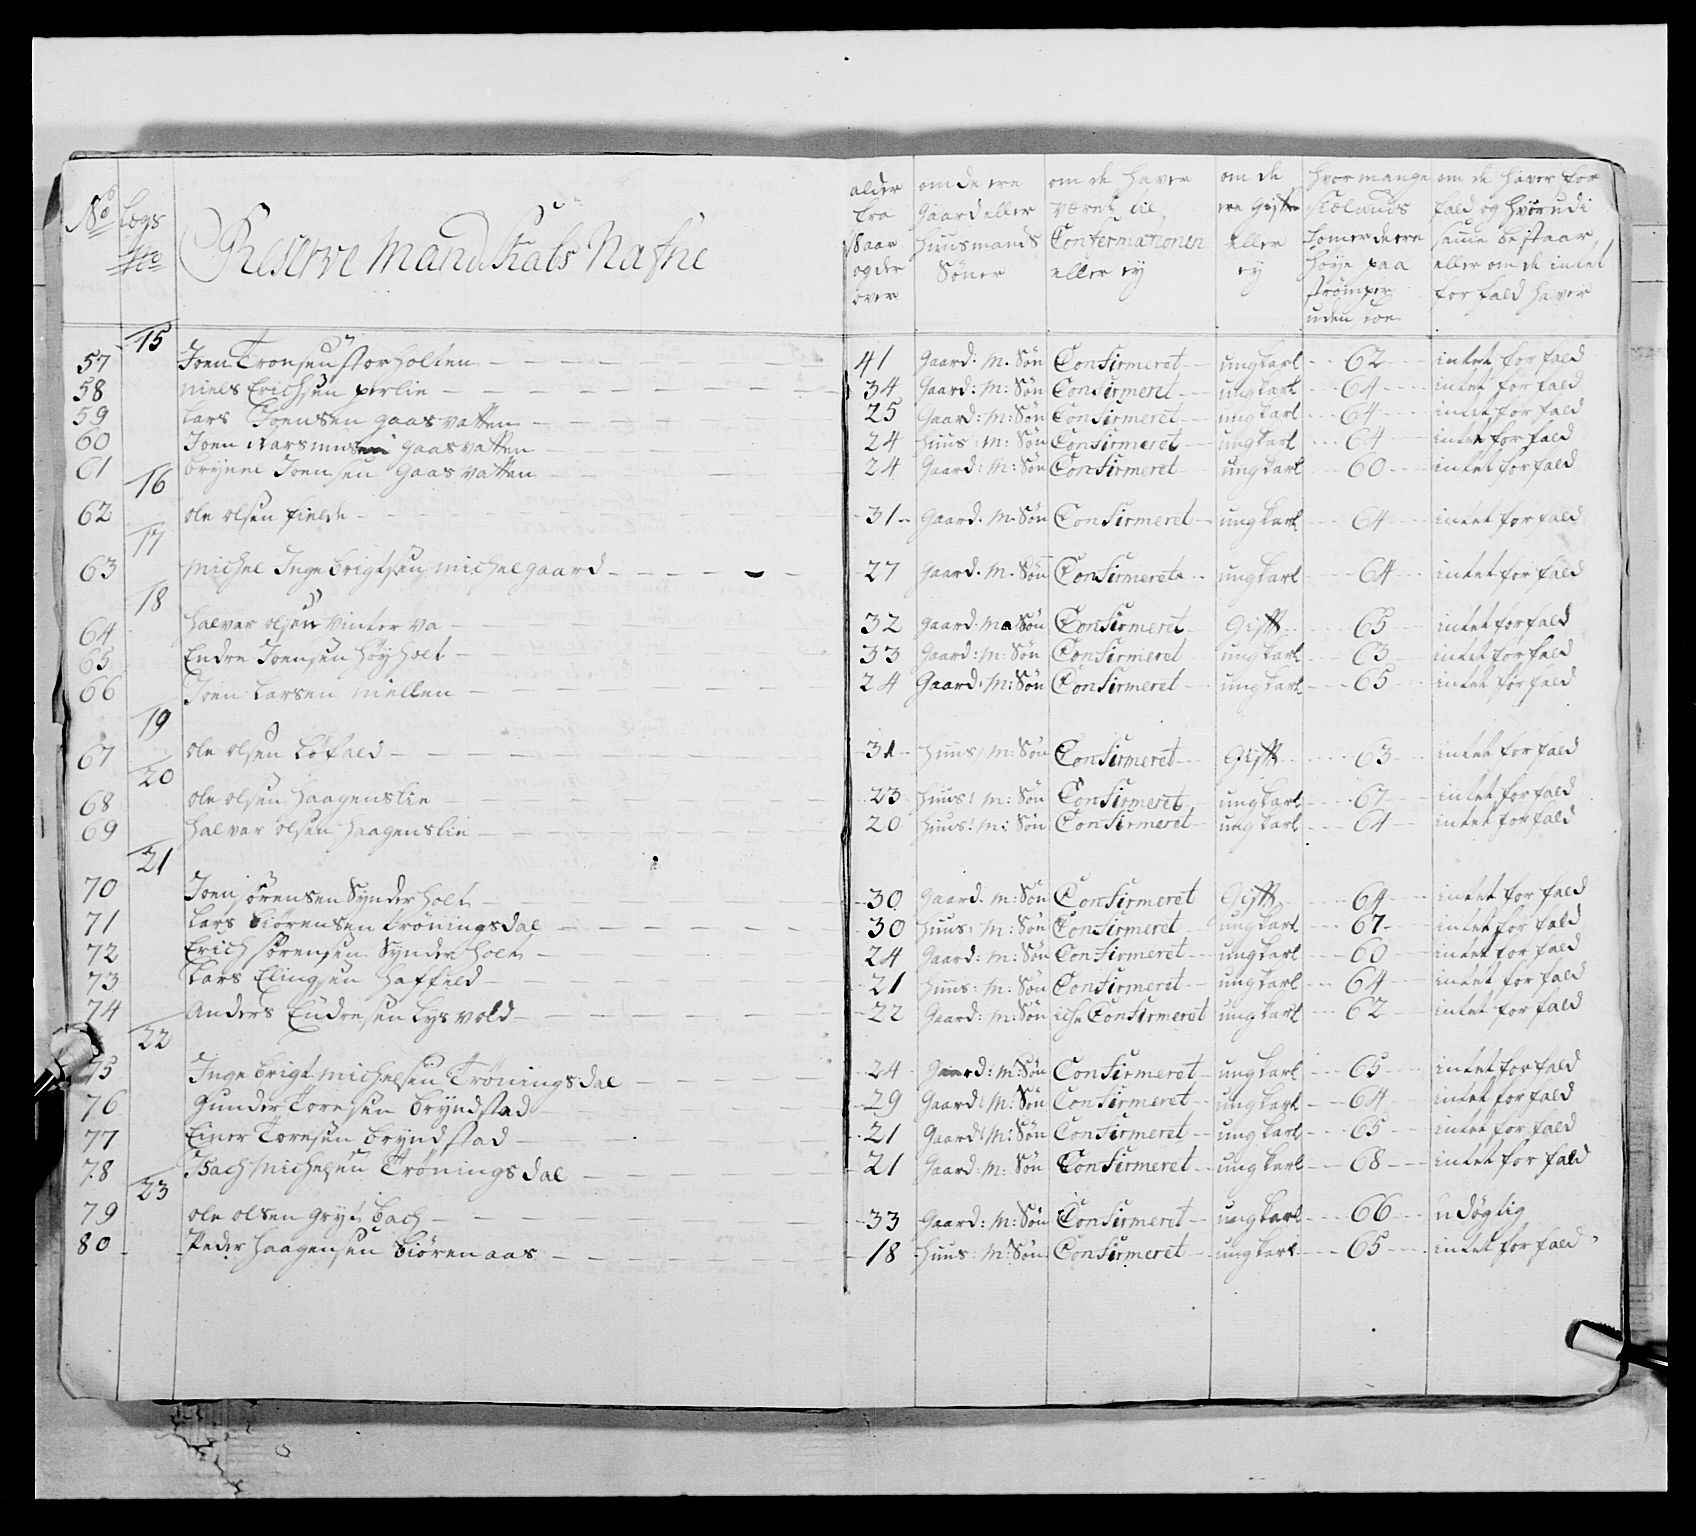 No Legs No Reserve Mandskabs Nafne
alder fra 18 aar og der over
om de ere Gaard eller Huusmands Søner
om de haver været til Confermationen eller ey
om de ere Gifte eller ey
hvor mange siælands tomer de ere høye paa strømper uden skoe
om de haver for fald og hvor udi samme bestaar, eller om de intet forfald haver
15
57 Joen Tronsen storholten 41 Gaard: M: Søn Confirmeret ungkarl 62 intet forfald
58 niels Erichsen perlie 34 Gaard: M: Søn Confirmeret ungkarl 64 intet forfald
59 Lars Joensen gaasvatten 25 Gaard: M: Søn Confirmeret ungkarl 64 intet forfald
60 Joen Rasmusen gaasvatten 24 Huus: M: Søn Confirmeret ungkarl 64 intet forfald
61 brynel Joensen Gaasvatten 24 Gaard: M: Søn Confirmeret ungkarl 60 intet forfald
16
62 ole olsen fielde 31 Gaard. M. Søn Confirmeret ungkarl 64 intet forfald
17
63 Michel Ingebrigtsen Michelgaard 27 Gaard. M. Søn Confirmeret ungkarl 64 intet forfald
18
64 Halvar olsen Vinterva 32 Gaard: Ma Søn Confirmeret Gifft 65 intet forfald
65 Endre Joensen Høyholt 33 Gaard: M: Søn Confirmeret ungkarl 63 intet forfald
66 Joen Larsen Miellen 24 Gaard: M: Søn Confirmeret ungkarl 65 intet forfald
19
67 ole olsen Løfald 31 Huus: M: Søn Confirmeret Gifft 63 intet forfald
20
68 ole olsen Haagenslie 23 Huus: M: Søn Confirmeret ungkarl 67 intet forfald
69 Halvar olsen Haagenslie 20 Huus: M: Søn Confirmeret ungkarl 64 intet forfald
21
70 Joen sørensen Synderholt 30 Gaard. M: Søn Confirmeret Gifft 64 intet forfald
71 Lars Biørensen Trøningsdal 30 Huus: M: Søn Confirmeret ungkarl 67 intet forfald
72 Erich sørensen Synderholt 24 Gaard: M: Søn Confirmeret ungkarl 60 intet forfald
73 Lars Elingsen Haffeld 21 Huus: M: Søn Confirmeret ungkarl 64 intet forfald
74 Anders Endresen Lysvold 22 Gaard: M: Søn iche Confirmeret ungkarl 62 intet forfald
22
75 Ingebrigt Michelsen Trøningsdal 24 Gaard: M: Søn Confirmeret ungkarl 65 intet forfald
76 Gunder Toresen Bryndstad 29 Gaard: M: Søn Confirmeret ungkarl 64 intet forfald
77 Einer Toresen Bryndstad 21 Gaard: M: Søn Confirmeret ungkarl 65 intet forfald
78 Isach Michelsen Trøningsdal 21 Gaard: M: Søn Confirmeret ungkarl 68 intet forfald
23
79 ole olsen Grytbach 33 Gaard: M: Søn Confirmeret ungkarl 66 udøgtig
80 Peder Haagensen Biørenaas 18 Huus: M: Søn Confirmeret ungkarl 65 intet forfald